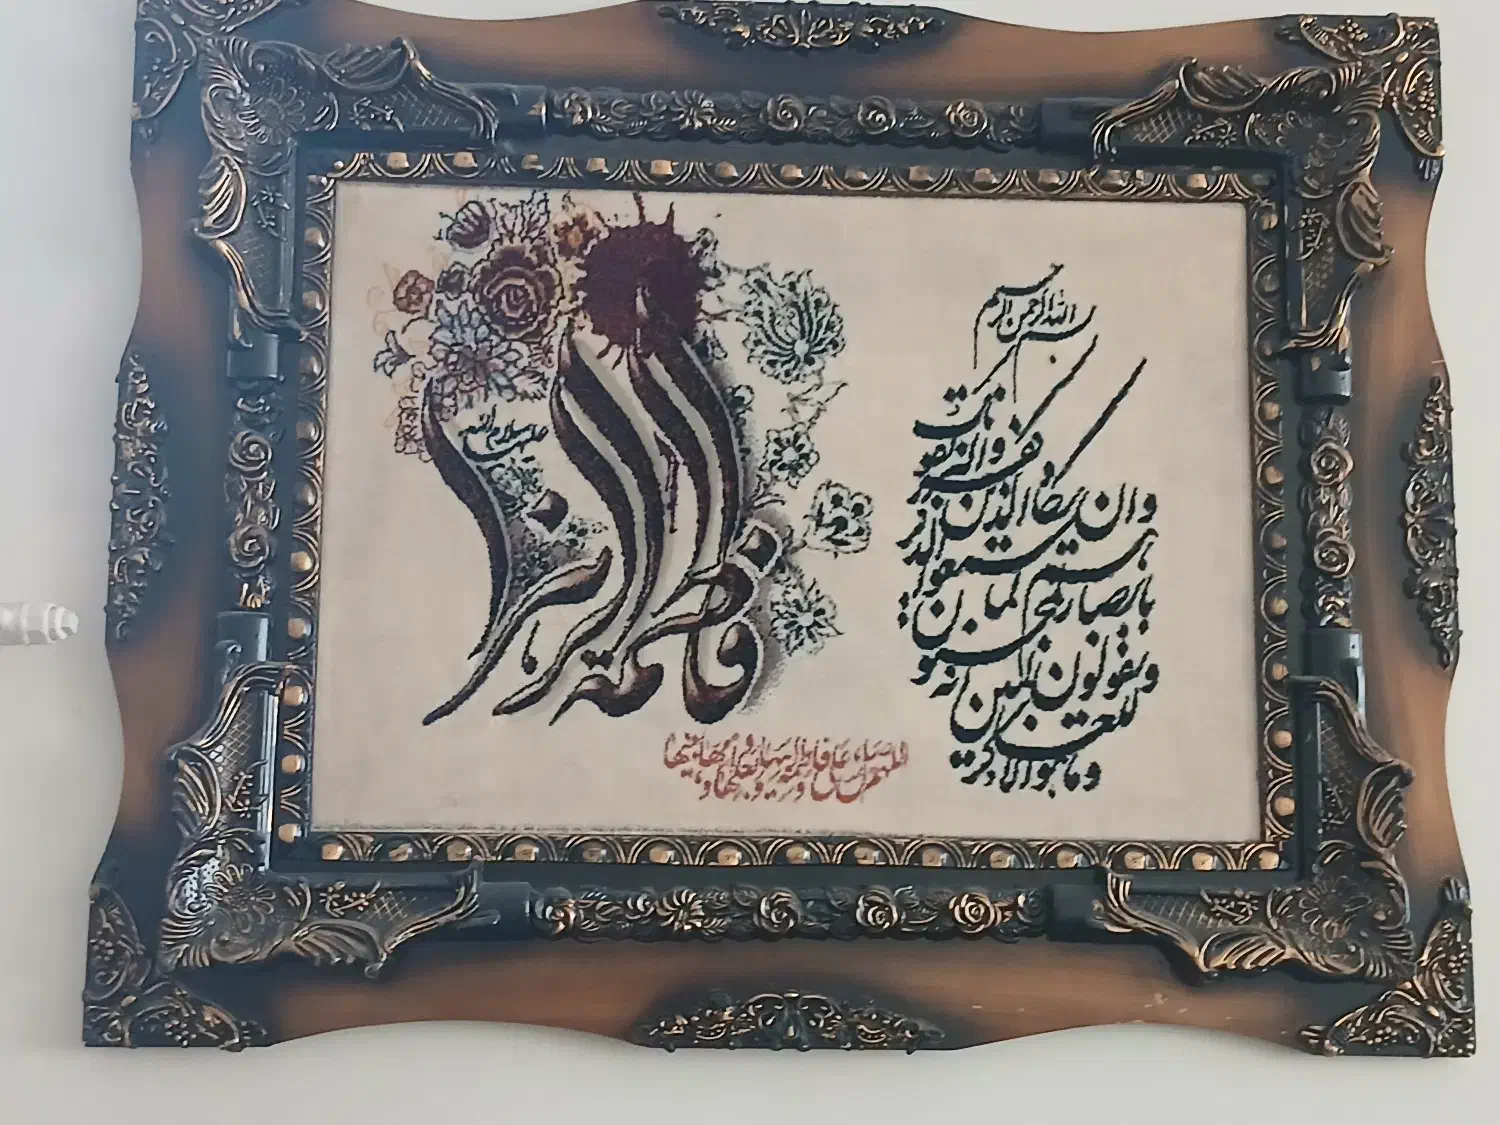 بسم الله الرحمن الرحیم
وان یکاد الذین کفروا
لیزلقونک بابصارهم لما سمعوا الذکر
ویقولون انه لمجنون
وما هو الا ذکر للعلمین
فاطمة الزهرا
سلام الله علیها
اللهم صل علی فاطمة و ابیها و بعلها و بنیها